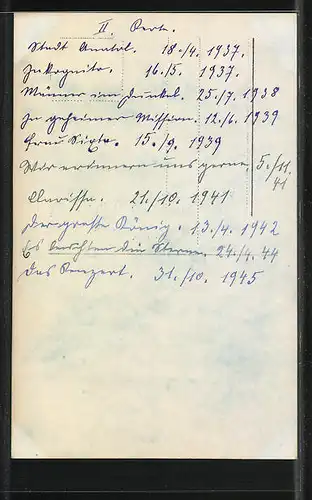 II. Karte.
Stadt Anatol. 18./4. 1937.
Inkognito. 16./5. 1937.
Männer im Dunkel. 25./7. 1938
In geheimer Mission. 12./6. 1939
Frau Sixta. 15./9. 1939
Wir erinnern uns gerne. 5./11. 41
Clarissa. 21./10. 1941
Der große König. 13./4. 1942
Es leuchten die Sterne. 24./4. 44
Das Konzert. 31./10. 1945